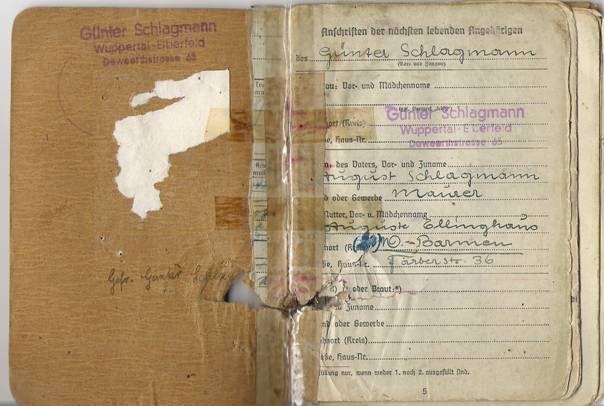 Günter Schlagmann
Wuppertal-Elberfeld
Deweerthstrasse 65
Gefr. Günter
Anschriften der nächsten lebenden Angehörigen
des Günter Schlagmann
(Vor- und Zuname)
au: Vor- und Mädchenname
Günter Schlagmann
ort (Kreis) Wuppertal-Elberfeld
e, Haus-Nr. Deweerthstrasse 65
des Vaters, Vor- und Zuname
August Schlagmann
d oder Gewerbe Maurer
Mutter, Vor- u. Mädchenname
Auguste Ellinghaus
nort W.-Barmen
ße, Haus-Nr. Färberstr. 36
oder Braut:*)
Zuname
nd oder Gewerbe
hnort (Kreis)
ße, Haus-Nr.
üllung nur, wenn weder 1. noch 2. ausgefüllt sind.
5